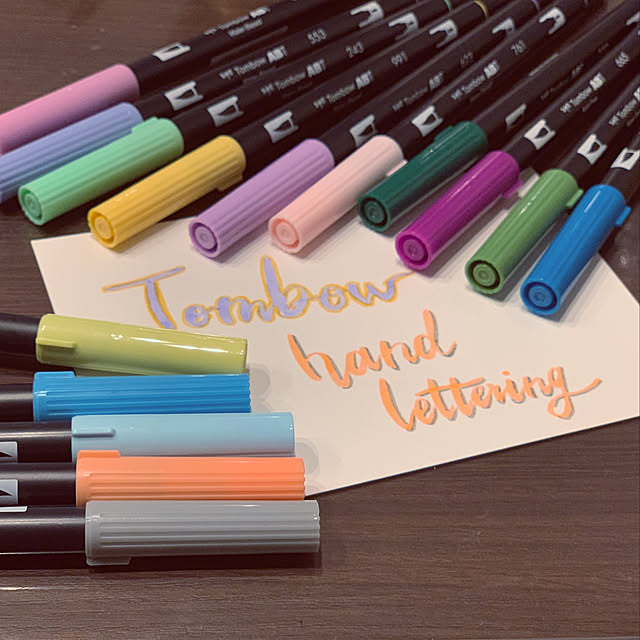 553
Tombow ABT
243
Tombow ABT
991
Tombow ABT
Tombow ABT
761
Tombow ABT
Tombow
hand
lettering